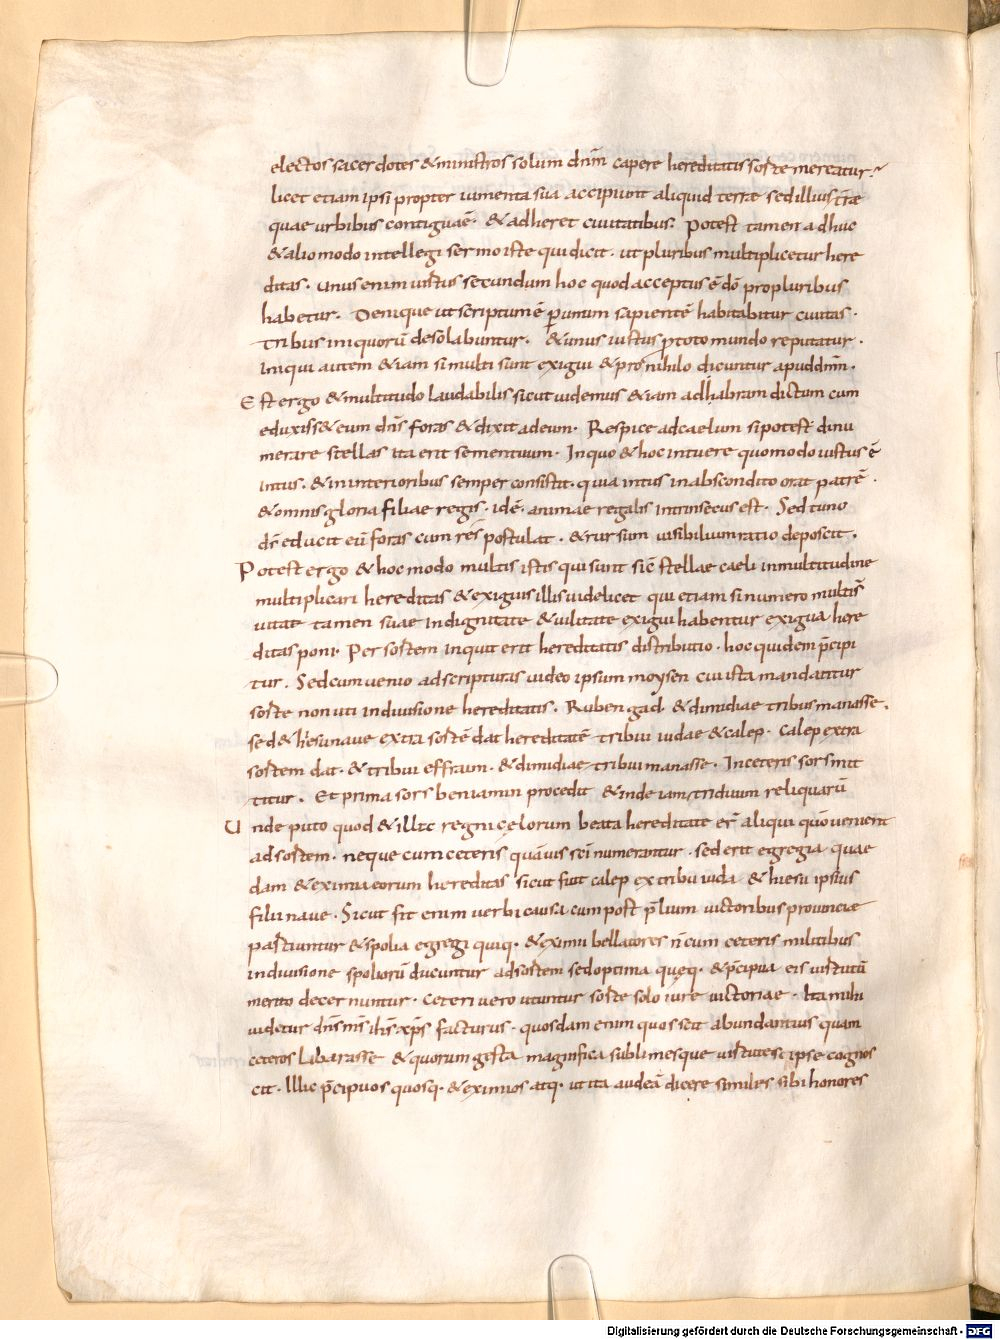 electos sacerdotes & ministros solum dnm̄ capere hereditatis sorte mereatur.
licet etiam ipsi propter iumenta sua accipiunt aliquid terrae sed illius t̄rae
quae urbibus contigua ē. & adheret ciuitatibus. Potest tamen adhuc
& alio modo intellegi sermo iste qui dicit. ut pluribus multiplicetur here
ditas. unus enim iustus secundum hoc quod acceptus ē dō pro pluribus
habetur. Denique ut scriptum ē per unum sapientē habitabitur ciuitas.
tribus iniquorū desolabuntur. & unus iustus pro toto mundo reputatur.
Iniqui autem & iam si multi sunt exigui & pro nihilo dicuntur apud dnm̄.
Est ergo & multitudo laudabilis sicut uidemus & iam ad habram dictum cum
eduxiss& eum dns̄ foras & dixit ad eum. Respice ad caelum si potest dinu
merare stellas ita erit semen tuum. In quo & hoc intuere quomodo iustus ē
intus. & in interioribus semper consistit. quia intus in abscondito orat patrē.
& omnis gloria filiae regis. idē. animae regalis intrinsecus est. Sed tunc
ds̄ educit eū foras cum res postulat. & rursum uisibilium ratio deposcit.
Potest ergo & hoc modo multis istis qui sunt sic̄ stellae caeli in multitudine
multiplicari hereditas & exiguis illis uidelicet qui etiam si numero multi s̄
uitae tamen suae indignitate & uilitate exigui habentur exigua here
ditas poni. Per sortem inquit erit hereditatis distributio. hoc quidem p̄cipi
tur. Sed cum uenio ad scripturas uideo ipsum moysen cui ista mandantur
sorte non uti in diuisione hereditatis. Ruben gad & dimidiae tribus manasse.
sed & hiesu naue extra sortē dat hereditatē tribui iudae & calep. calep extra
sortem dat. & tribui effraim. & dimidiae tribui manasse. In ceteris sors mit
titur. Et prima sors beniamin procedit & inde iam triduum reliquarū
Unde puto quod & illic regni celorum beata hereditate er̄ aliqui quō uenient
ad sortem. neque cum ceteris quāuis sc̄i numerantur. sed erit egregia quae
dam & eximia eorum hereditas sicut fuit calep ex tribu iuda & hiesu ipsius
filii naue. Sicut fit enim uerbi causa cum post p̄lium uictoribus prouinciae
partiuntur & spolia egregi quiq. & eximii bellatores n̄ cum ceteris militibus
in diuisione spoliorū ducuntur ad sortem sed optima quęq. & p̄cipua eis uirtutū
merito decernuntur. ceteri uero utuntur sorte solo iure uictoriae. Ita mihi
uidetur dns̄ ms̄ ihs̄ xp̄s facturus. quosdam enim quos scit abundantius quam
ceteros laborasse & quorum gesta magnifica sublimesque uirtutes ipse cognos
cit. Illic p̄cipuos quosq. & eximios atq. ut ita audeā dicere similes sibi honores